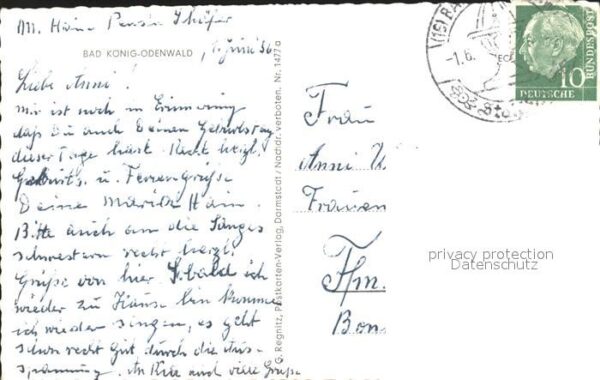 M. Hain Pension Schäfer
BAD KÖNIG-ODENWALD
1. Juni 56
Liebe Anni!
Mir ist noch in Erinnerung
daß Du auch Deinen Geburtstag
dieser Tage hast. Recht herzl.
Geburts. u. Feriengrüße
Deine Marida Hain.
Bitte auch an die Sanges
schwestern recht herzl.
Grüße von hier. Sobald ich
wieder zu Hause bin komme
ich wieder singen, es geht
schon recht gut durch die Aus-
spannung. viele Grüße
G. Regnitz, Postkarten-Verlag, Darmstadt / Nachdr. verboten. Nr. 1477 a
Frau
Anni
Frauen
Ffm.
Bon
-1.6.
10
DEUTSCHE
BUNDESPOST
privacy protection
Datenschutz